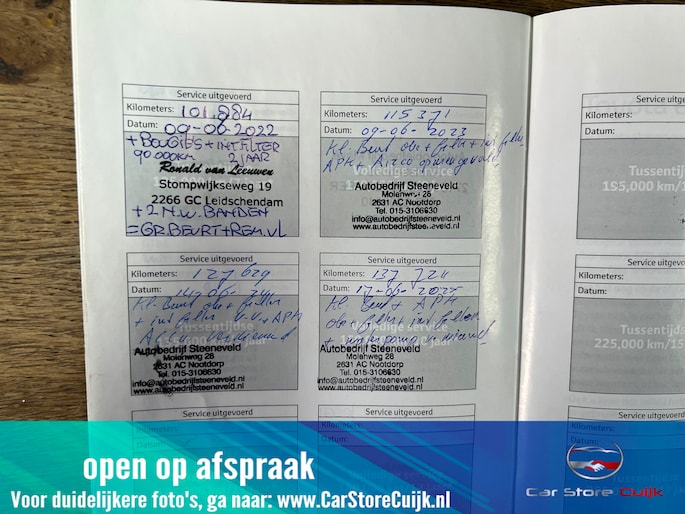 Service uitgevoerd
Kilometers: 101.884
Datum: 09-06-2022
+ BOUGIES + INT FILTER
90.000KM 2 JAAR
Ronald van Leeuwen
Stompwijkseweg 19
2266 GC Leidschendam
+ 2 N.W. BANDEN
= GR.BEURT + REM.VL
Service uitgevoerd
Kilometers: 115371
Datum: 09-06-2023
Kl. Beurt olie + filter + int filter
APK + Airco
Volledige service
Autobedrijf Steeneveld
Molenweg 28
2631 AC Nootdorp
Tel. 015-3106630
info@autobedrijfsteeneveld.nl
www.autobedrijfsteeneveld.nl
Service uitgevoerd
Kilometers: 127629
Datum:
Kl Beurt olie + filter
+ int filter + APK
Tussentijdse
Autobedrijf Steeneveld
Molenweg 28
2631 AC Nootdorp
Tel. 015-3106630
info@autobedrijfsteeneveld.nl
www.autobedrijfsteeneveld.nl
Service uitgevoerd
Kilometers: 137
Datum: 17-06-2025
Kl Beurt + APK
olie filter + int filter
Volledige service
Autobedrijf Steeneveld
Molenweg 28
2631 AC Nootdorp
Tel. 015-3106630
info@autobedrijfsteeneveld.nl
www.autobedrijfsteeneveld.nl
Service uitgevoerd
Kilometers:
Datum:
Service uitgevoerd
Kilometers:
Datum:
Kilometers:
Datum:
Tussenti
195,000 km/1
Service
Kilometers:
Datum:
Tussenti
225,000 km/15
Service
Kilometers:
Datum:
open op afspraak
Voor duidelijkere foto's, ga naar: www.CarStoreCuijk.nl
Car Store Cuijk